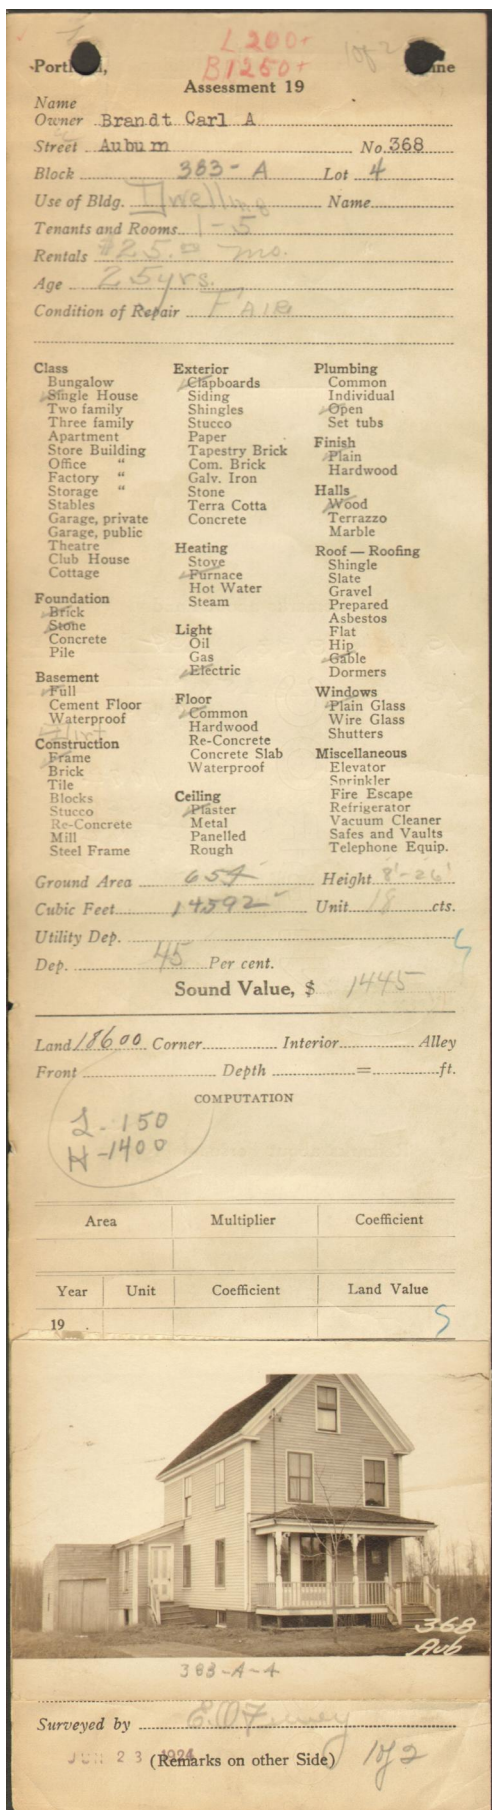 L 200+
1 of 2
B 1250+
Portland, Maine
Assessment 19
Name
Owner Brandt Carl A
Street Auburn No. 368
Block 383-A Lot 4
Use of Bldg. Dwelling Name
Tenants and Rooms 1-5
Rentals $25.00 mo.
Age 25 yrs.
Condition of Repair FAIR
Class
Bungalow
Single House
Two family
Three family
Apartment
Store Building
Office "
Factory "
Storage "
Stables
Garage, private
Garage, public
Theatre
Club House
Cottage
Foundation
Brick
Stone
Concrete
Pile
Basement
Full
Cement Floor
Waterproof
Dirt
Construction
Frame
Brick
Tile
Blocks
Stucco
Re-Concrete
Mill
Steel Frame
Exterior
Clapboards
Siding
Shingles
Stucco
Paper
Tapestry Brick
Com. Brick
Galv. Iron
Stone
Terra Cotta
Concrete
Heating
Stove
Furnace
Hot Water
Steam
Light
Oil
Gas
Electric
Floor
Common
Hardwood
Re-Concrete
Concrete Slab
Waterproof
Ceiling
Plaster
Metal
Panelled
Rough
Plumbing
Common
Individual
Open
Set tubs
Finish
Plain
Hardwood
Halls
Wood
Terrazzo
Marble
Roof — Roofing
Shingle
Slate
Gravel
Prepared
Asbestos
Flat
Hip
Gable
Dormers
Windows
Plain Glass
Wire Glass
Shutters
Miscellaneous
Elevator
Sprinkler
Fire Escape
Refrigerator
Vacuum Cleaner
Safes and Vaults
Telephone Equip.
Ground Area 654 Height 8'-26'
Cubic Feet 14592 Unit 18 cts.
Utility Dep.
Dep. 45 Per cent.
Sound Value, $ 1445
Land 18600 Corner Interior Alley
Front Depth = ft.
COMPUTATION
L-150
H-1400
Area Multiplier Coefficient
Year Unit Coefficient Land Value
19
368
Aub
383-A-4
Surveyed by
JUN 23 1924 (Remarks on other Side) 1 of 2